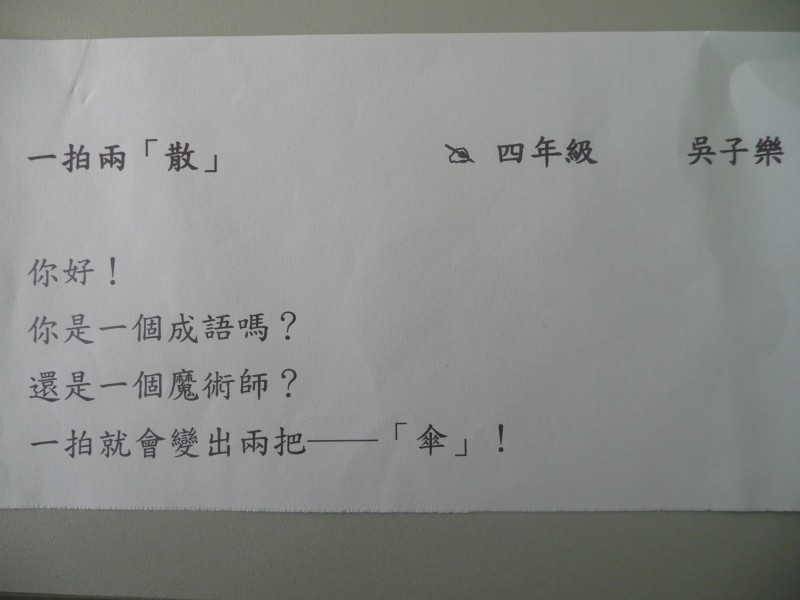 一拍兩「散」 四年級 吳子樂
你好！
你是一個成語嗎？
還是一個魔術師？
一拍就會變出兩把——「傘」！